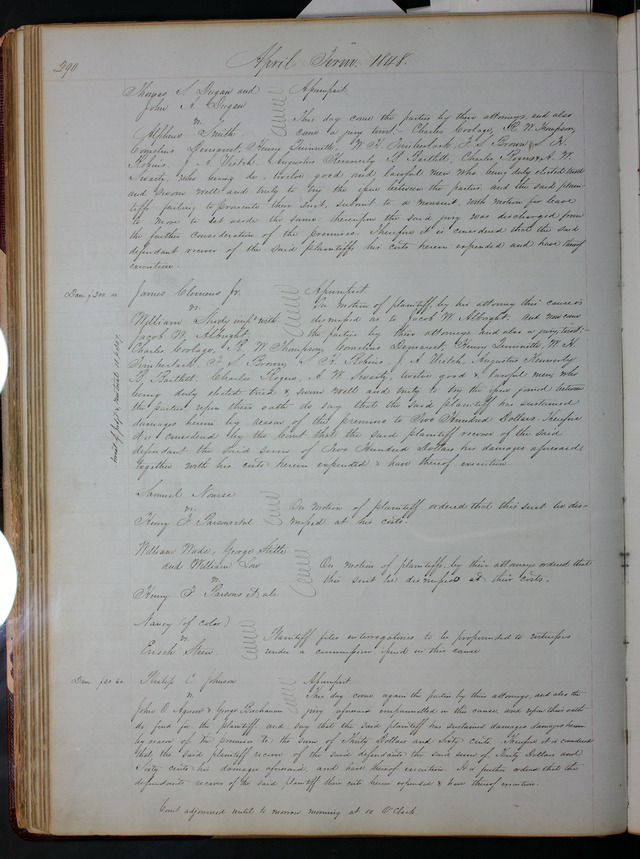 290
April Term. 1848.
Thomas S. Dugan and
John A. Dugan
vs
Alpheus Smith.
Assumpsit.
This day come the parties by their attorneys, and also
came a jury towit: Charles Coolage, R. W. Thompson,
Cornelius Demarest, Henry W. H. Timberlack, I. S. Brown, S. H.
Robins, J. A. Hatch, Augustus Kennerly, B. Bartlett, Charles Rogers & A. W.
Swasty, who being do. twelve good and lawful men who being duly elected tried
and sworn well and truly to try the issue between the parties and the said plain-
tiff failing to prosecute their suit, submit to a nonsuit, with motion for leave
to move to set aside the same. thereupon the said jury was discharged from
the further consideration of the premises. Therefore it is considered that the said
defendant recover of the said plaintiffs his costs herein expended and have thereof
execution.
Dam $200.00
James Clemens Jr.
vs
William Shedy impd with
Jacob W. Albright.
Assumpsit.
On motion of plaintiff by his attorney this cause is
dismissed as to Jacob W. Albright. and now come
the parties by their attorneys and also a jury, towit:
Charles Coolage, R. W. Thompson, Cornelius Demarest, Henry W. H.
Timberlack, I. S. Brown, S. H. Robins, J. A. Hatch, Augustus Kennerly
B. Bartlett, Charles Rogers, A. W. Swasty, twelve good & lawful men, who
being duly elected tried & sworn well and truly to try the issue joined between
the parties upon their oath do say that the said plaintiff has sustained
damages herein by reason of the premises to Two Hundred Dollars. Therefore
it is considered by the Court that the said plaintiff recover of the said
defendant the said sum of Two Hundred Dollars his damages aforesaid
together with his costs herein expended & have thereof execution.
Samuel Nourse
vs
Henry F.
On motion of plaintiff ordered that this suit be dis-
missed at his costs.
William Wade, George Stille
and William Low
vs
Henry F. Parsons et als.
On motion of plaintiff, by their attorneys ordered that
this suit be dismissed at their costs.
Nancy (of color)
vs
Enoch Steen
Plaintiff files interrogatories to be propounded to witnesses
under a commission issued in this cause
Dam $30.60.
Philip C. Johnson
vs
John O. Agnew & George Buchanan
Assumpsit
This day come again the parties by their attorneys, and also the
jury aforesaid empannelled in this cause, and upon their oath
do find for the plaintiff and say that the said plaintiff has sustained damages damages herein
by reason of the premises to the sum of Thirty Dollars and Sixty cents. Therefore it is considered
that the said plaintiff recover of the said defendants the said sum of Thirty Dollars and
Sixty cents his damages aforesaid, and have thereof execution. It is further ordered that the
defendants recover of the said plaintiff their costs herein expended & have thereof execution.
Court adjourned until to morrow morning at 10 O'Clock.